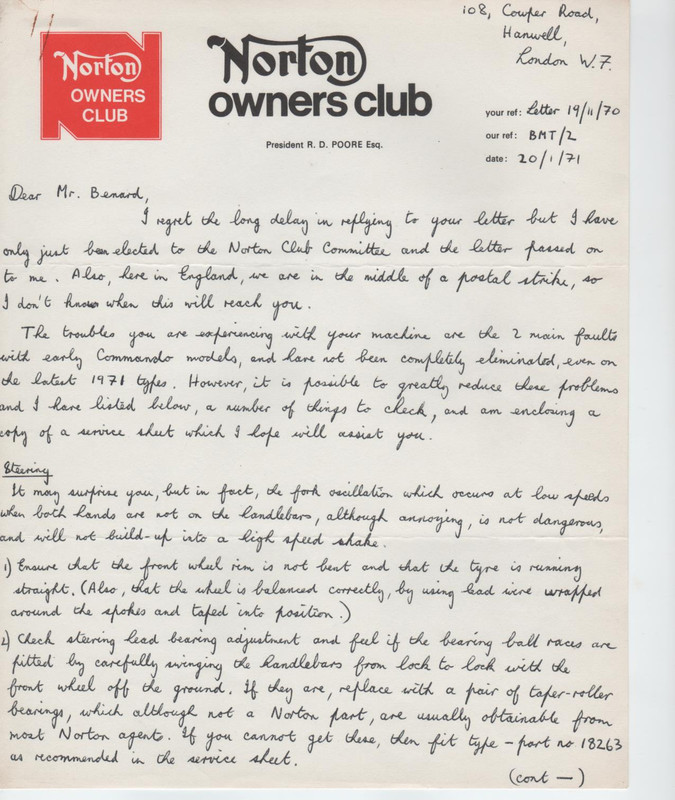 108, Cowper Road,
Hanwell,
London W.7.
Norton
OWNERS
CLUB
Norton
owners club
President R. D. POORE Esq.
your ref: Letter 19/11/70
our ref: BMT/2
date: 20/1/71
Dear Mr. Benard,
I regret the long delay in replying to your letter but I have
only just been elected to the Norton Club Committee and the letter passed on
to me. Also, here in England, we are in the middle of a postal strike, so
I don't know when this will reach you.
The troubles you are experiencing with your machine are the 2 main faults
with early Commando models, and have not been completely eliminated, even on
the latest 1971 types. However, it is possible to greatly reduce these problems
and I have listed below, a number of things to check, and am enclosing a
copy of a service sheet which I hope will assist you.
Steering
It may surprise you, but in fact, the fork oscillation which occurs at low speeds
when both hands are not on the handlebars, although annoying, is not dangerous,
and will not build-up into a high speed shake.
1) Ensure that the front wheel rim is not bent and that the tyre is running
straight. (Also, that the wheel is balanced correctly, by using lead wire wrapped
around the spokes and taped into position.)
2) Check steering head bearing adjustment and feel if the bearing ball races are
pitted by carefully swinging the handlebars from lock to lock with the
front wheel off the ground. If they are, replace with a pair of taper-roller
bearings, which although not a Norton part, are usually obtainable from
most Norton agents. If you cannot get these, then fit type - part no 18263
as recommended in the service sheet.
(cont —)